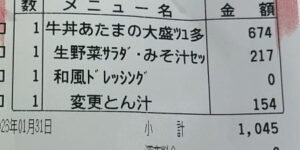 数 メニュー名 金額
1 牛丼あたまの大盛ﾂﾕ多 674
1 生野菜ｻﾗﾀﾞ･みそ汁ｾｯ 217
1 和風ﾄﾞﾚｯｼﾝｸﾞ 0
1 変更とん汁 154
25年01月31日 小計 1,045